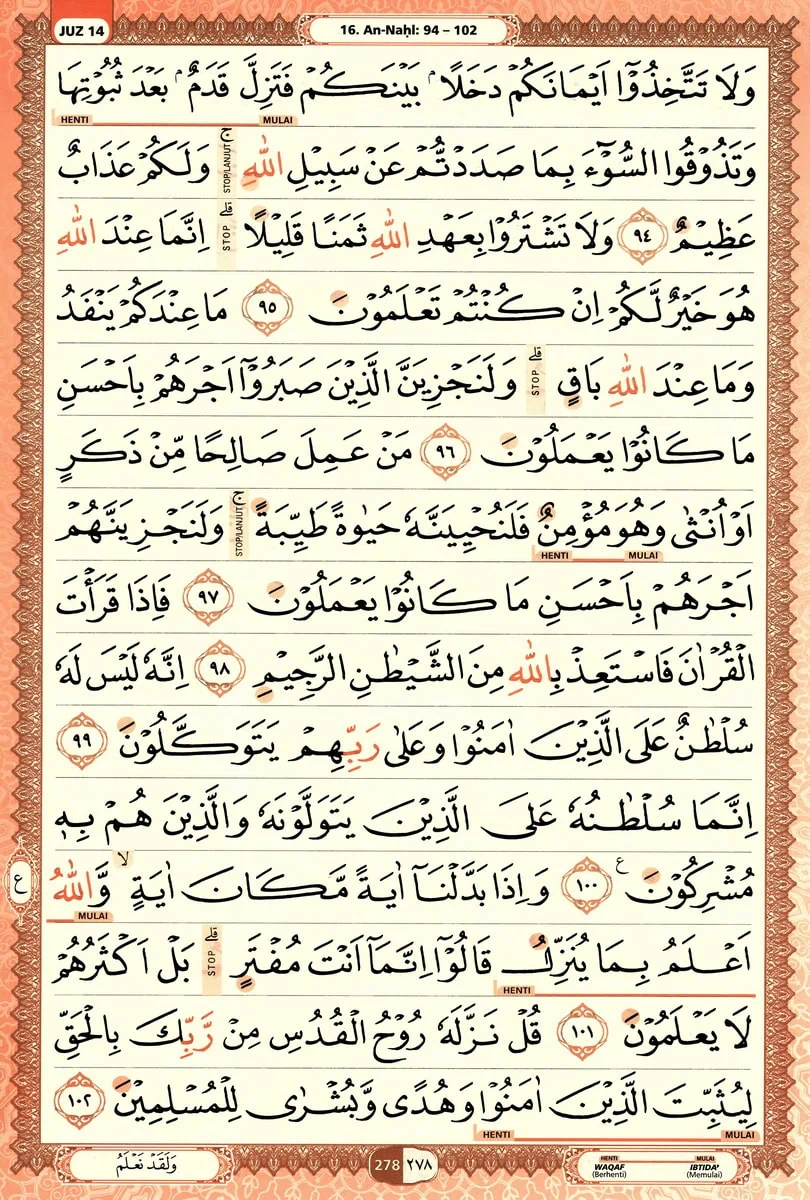 JUZ 14
16. An-Naḥl: 94 – 102
وَلَا تَتَّخِذُوْٓا اَيْمَانَكُمْ دَخَلًا ۢ بَيْنَكُمْ فَتَزِلَّ قَدَمٌ ۢ بَعْدَ ثُبُوْتِهَا
HENTI MULAI
وَتَذُوْقُوا السُّوْۤءَ بِمَا صَدَدْتُّمْ عَنْ سَبِيْلِ اللّٰهِ ۚ وَلَكُمْ عَذَابٌ
STOP/LANJUT
عَظِيْمٌ ٩٤ وَلَا تَشْتَرُوْا بِعَهْدِ اللّٰهِ ثَمَنًا قَلِيْلًا ۗ اِنَّمَا عِنْدَ اللّٰهِ
STOP
هُوَ خَيْرٌ لَّكُمْ اِنْ كُنْتُمْ تَعْلَمُوْنَ ٩٥ مَا عِنْدَكُمْ يَنْفَدُ
وَمَا عِنْدَ اللّٰهِ بَاقٍ ۗ وَلَنَجْزِيَنَّ الَّذِيْنَ صَبَرُوْٓا اَجْرَهُمْ بِاَحْسَنِ
STOP
مَا كَانُوْا يَعْمَلُوْنَ ٩٦ مَنْ عَمِلَ صَالِحًا مِّنْ ذَكَرٍ
اَوْ اُنْثٰى وَهُوَ مُؤْمِنٌ فَلَنُحْيِيَنَّهٗ حَيٰوةً طَيِّبَةً ۚ وَلَنَجْزِيَنَّهُمْ
HENTI MULAI STOP/LANJUT
اَجْرَهُمْ بِاَحْسَنِ مَا كَانُوْا يَعْمَلُوْنَ ٩٧ فَاِذَا قَرَأْتَ
الْقُرْاٰنَ فَاسْتَعِذْ بِاللّٰهِ مِنَ الشَّيْطٰنِ الرَّجِيْمِ ٩٨ اِنَّهٗ لَيْسَ لَهٗ
سُلْطٰنٌ عَلَى الَّذِيْنَ اٰمَنُوْا وَعَلٰى رَبِّهِمْ يَتَوَكَّلُوْنَ ٩٩
اِنَّمَا سُلْطٰنُهٗ عَلَى الَّذِيْنَ يَتَوَلَّوْنَهٗ وَالَّذِيْنَ هُمْ بِهٖ
مُشْرِكُوْنَ ࣖ ١٠٠ وَاِذَا بَدَّلْنَآ اٰيَةً مَّكَانَ اٰيَةٍ ۙ وَّاللّٰهُ
ع
MULAI
اَعْلَمُ بِمَا يُنَزِّلُ قَالُوْٓا اِنَّمَآ اَنْتَ مُفْتَرٍ ۗ بَلْ اَكْثَرُهُمْ
HENTI STOP
لَا يَعْلَمُوْنَ ١٠١ قُلْ نَزَّلَهٗ رُوْحُ الْقُدُسِ مِنْ رَّبِّكَ بِالْحَقِّ
لِيُثَبِّتَ الَّذِيْنَ اٰمَنُوْا وَهُدًى وَّبُشْرٰى لِلْمُسْلِمِيْنَ ١٠٢
HENTI MULAI
وَلَقَدْ نَعْلَمُ
278 ٢٧٨
HENTI MULAI
WAQAF IBTIDA'
(Berhenti) (Memulai)